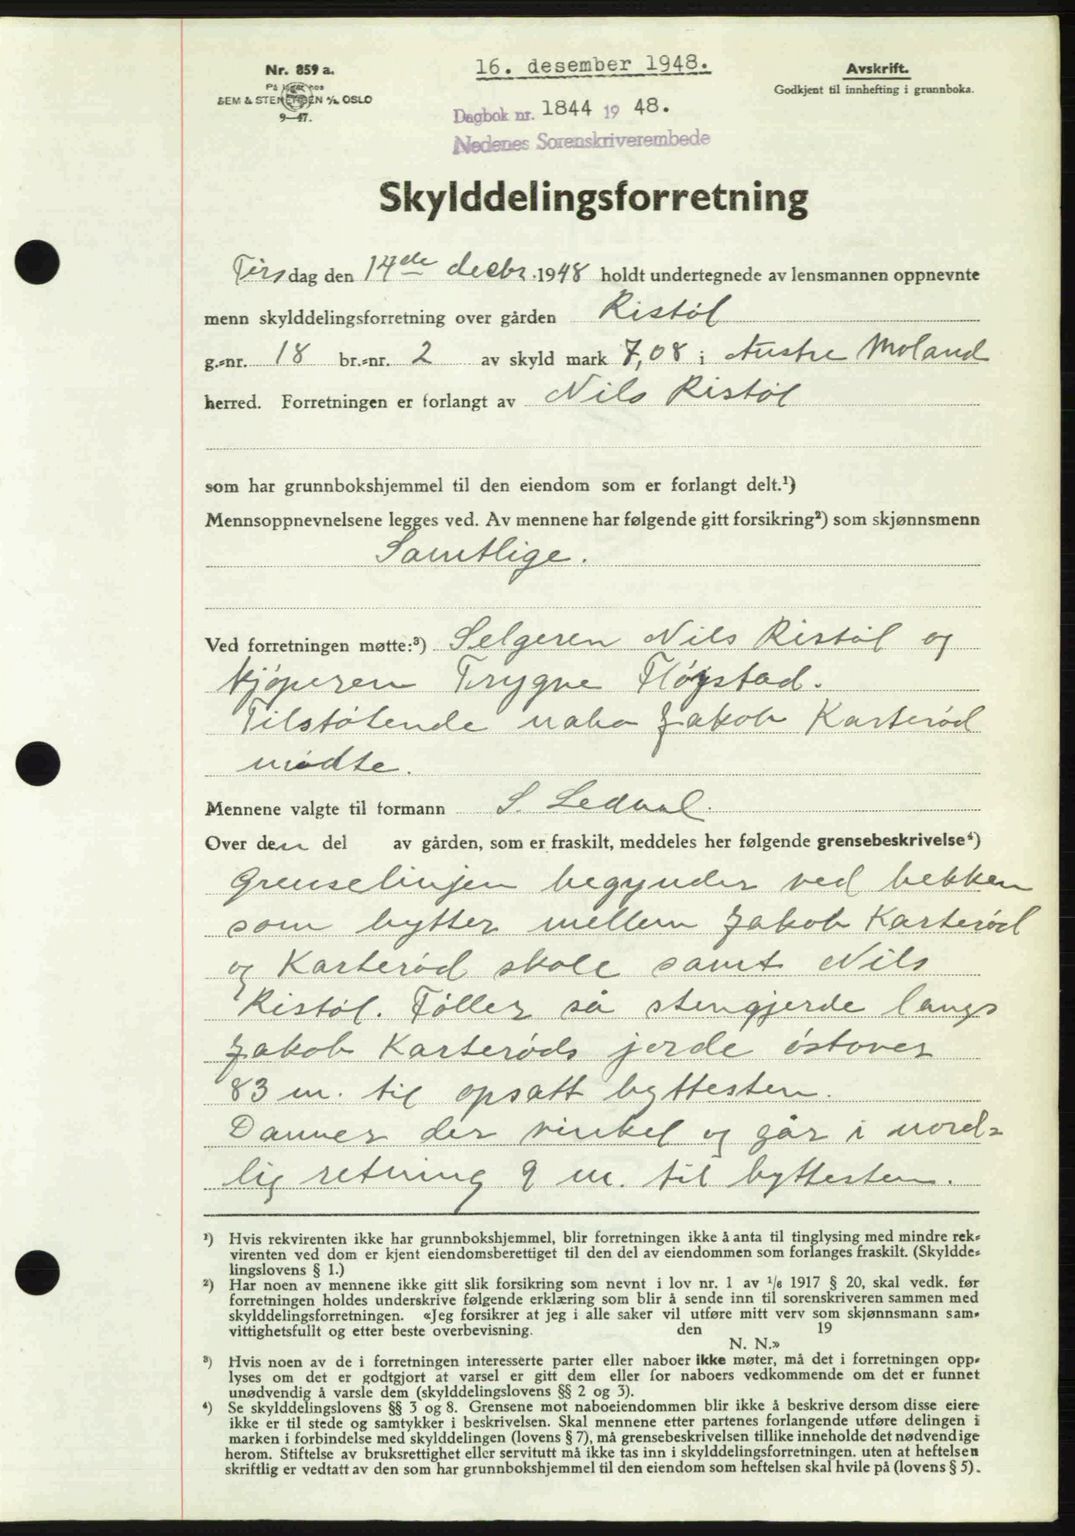 Nr. 859 a.
På lager hos
SEM & STENERSEN A/S, OSLO
9—47.
16. desember 1948.
Dagbok nr. 1844 19 48.
Nedenes Sorenskriverembede
Avskrift.
Godkjent til innhefting i grunnboka.
Skylddelingsforretning
Tirsdag den 14de decbr. 1948 holdt undertegnede av lensmannen oppnevnte
menn skylddelingsforretning over gården Ristöl
g.-nr. 18 br.-nr. 2 av skyld mark 7,08 i Austre Moland
herred. Forretningen er forlangt av Nils Ristöl
som har grunnbokshjemmel til den eiendom som er forlangt delt.¹)
Mennsoppnevnelsene legges ved. Av mennene har følgende gitt forsikring²) som skjønnsmenn
Samtlige.
Ved forretningen møtte:³) Selgeren Nils Ristöl og
kjöperen Trygve Fløystad.
Tilstötende nabo Jakob Karteröd
mødte.
Mennene valgte til formann S. Ledaal.
Over den del av gården, som er fraskilt, meddeles her følgende grensebeskrivelse⁴)
Grenselinjen begynder ved bekken
som bytter mellem Jakob Karteröd
og Karteröd skole samt Nils
Ristöl. Föller så stengjerde langs
Jakob Karteröds jorde östover
83 m. til opsatt byttesten.
Danner der vinkel og går i nord-
lig retning 9 m. til byttesten.
¹) Hvis rekvirenten ikke har grunnbokshjemmel, blir forretningen ikke å anta til tinglysing med mindre rek-
virenten ved dom er kjent eiendomsberettiget til den del av eiendommen som forlanges fraskilt. (Skyldde-
lingslovens § 1.)
²) Har noen av mennene ikke gitt slik forsikring som nevnt i lov nr. 1 av 1/6 1917 § 20, skal vedk. før
forretningen holdes underskrive følgende erklæring som blir å sende inn til sorenskriveren sammen med
skylddelingsforretningen. «Jeg forsikrer at jeg i alle saker vil utføre mitt verv som skjønnsmann sam-
vittighetsfullt og etter beste overbevisning. den 19
N. N.»
³) Hvis noen av de i forretningen interesserte parter eller naboer ikke møter, må det i forretningen opp-
lyses om det er godtgjort at varsel er gitt dem eller for naboers vedkommende om det er funnet
unødvendig å varsle dem (skylddelingslovens §§ 2 og 3).
⁴) Se skylddelingslovens §§ 3 og 8. Grensene mot naboeiendommen blir ikke å beskrive dersom disse eiere
ikke er til stede og samtykker i beskrivelsen. Skal mennene etter partenes forlangende utføre delingen i
marken i forbindelse med skylddelingen (lovens § 7), må grensebeskrivelsen tillike inneholde det nødvendige
herom. Stiftelse av bruksrettighet eller servitutt må ikke tas inn i skylddelingsforretningen, uten at heftelsen
skriftlig er vedtatt av den som har grunnbokshjemmel til den eiendom som heftelsen skal hvile på (lovens § 5).